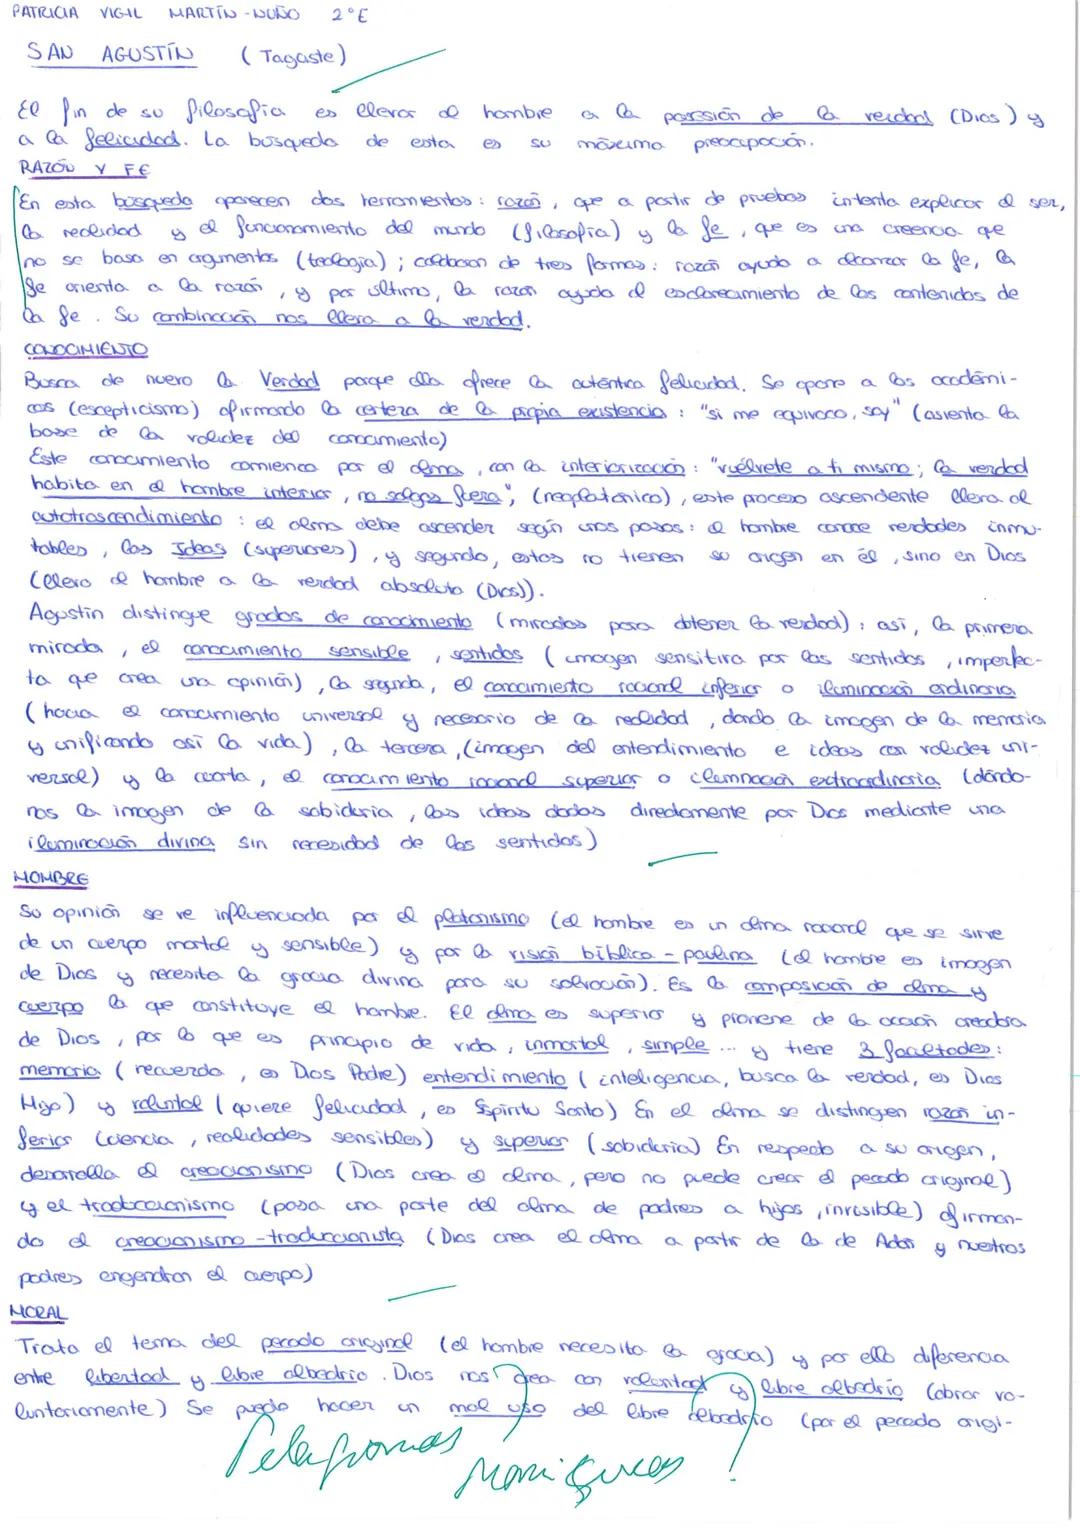 PATRICIA VIGIL MARTÍN-NUÑO 2ºE
SAN AGUSTÍN (Tagaste)
El fin de su filosofía es llevar al hombre a la posesión de la verdad (Dios) y
a la felicidad. La búsqueda de esta es su máxima preocupación.
RAZÓN Y FE
En esta búsqueda aparecen dos herramientas: razón, que a partir de pruebas intenta explicar el ser,
la realidad y el funcionamiento del mundo (filosofía) y la fe, que es una creencia que
no se basa en argumentos (teología); colaboran de tres formas: razón ayuda a alcanzar la fe, la
fe orienta a la razón, y por último, la razón ayuda al esclarecimiento de los contenidos de
la fe. Su combinación nos lleva a la verdad.
CONOCIMIENTO
Busca de nuevo la Verdad porque ella ofrece la auténtica felicidad. Se opone a los académi-
cos (escepticismo) afirmando la certeza de la propia existencia: "si me equivoco, soy" (asienta la
base de la validez del conocimiento)
Este conocimiento comienza por el alma, con la interiorización: "vuélvete a ti mismo; la verdad
habita en el hombre interior, no salgas fuera", (neoplatónico), este proceso ascendente lleva al
autotrascendimiento: el alma debe ascender según unos pasos: el hombre conoce verdades inmu-
tables, las Ideas (superiores), y segundo, estas no tienen su origen en él, sino en Dios
(lleva al hombre a la verdad absoluta (Dios)).
Agustín distingue grados de conocimiento (miradas para obtener la verdad): así, la primera
mirada, el conocimiento sensible, sentidos (imagen sensitiva por los sentidos, imperfec-
ta que crea una opinión), la segunda, el conocimiento racional inferior o iluminación ordinaria
(hacia el conocimiento universal y necesario de la realidad, dando la imagen de la memoria
y unificando así la vida), la tercera, (imagen del entendimiento e ideas con validez uni-
versal) y la cuarta, el conocimiento racional superior o iluminación extraordinaria (dándo-
nos la imagen de la sabiduría, las ideas dadas directamente por Dios mediante una
iluminación divina sin necesidad de los sentidos)
HOMBRE
Su opinión se ve influenciada por el platonismo (el hombre es un alma racional que se sirve
de un cuerpo mortal y sensible) y por la visión bíblica-paulina (el hombre es imagen
de Dios y necesita la gracia divina para su salvación). Es la composición de alma y
cuerpo la que constituye el hombre. El alma es superior y proviene de la acción creadora
de Dios, por lo que es principio de vida, inmortal, simple... y tiene 3 facultades:
memoria (recuerda, es Dios Padre) entendimiento (inteligencia, busca la verdad, es Dios
Hijo) y voluntad (quiere felicidad, es Espíritu Santo) En el alma se distinguen razón in-
ferior (ciencia, realidades sensibles) y superior (sabiduría) En respecto a su origen,
desarrolla el creacionismo (Dios crea el alma, pero no puede crear el pecado original)
y el traduccionismo (pasa una parte del alma de padres a hijos, invisible) afirman-
do el creacionismo-traduccionista (Dios crea el alma a partir de la de Adán y nuestros
padres engendran el cuerpo)
MORAL
Trata el tema del pecado original (el hombre necesita la gracia) y por ello diferencia
entre libertad y libre albedrío. Dios nos crea con voluntad y libre albedrío (obrar vo-
luntariamente) Se puede hacer un mal uso del libre albedrío (por el pecado origi-
Pelagianos
Maniqueos?